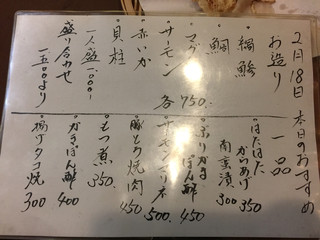 2月18日 本日のおすすめ
お造り
・縞鯵
・鯛
・マグロ
・サーモン 各750.
・赤いか
・貝柱
一盛 1,000.
盛り合わせ
一五〇〇より
一品
・はたはたからあげ 350
南蛮漬 300
・ぶりかまぽん酢 450
・サーモンマリネ 500.
・豚とろ焼肉 450
・もつ煮 350.
・かきぽん酢 400
・揚げタコ焼 300